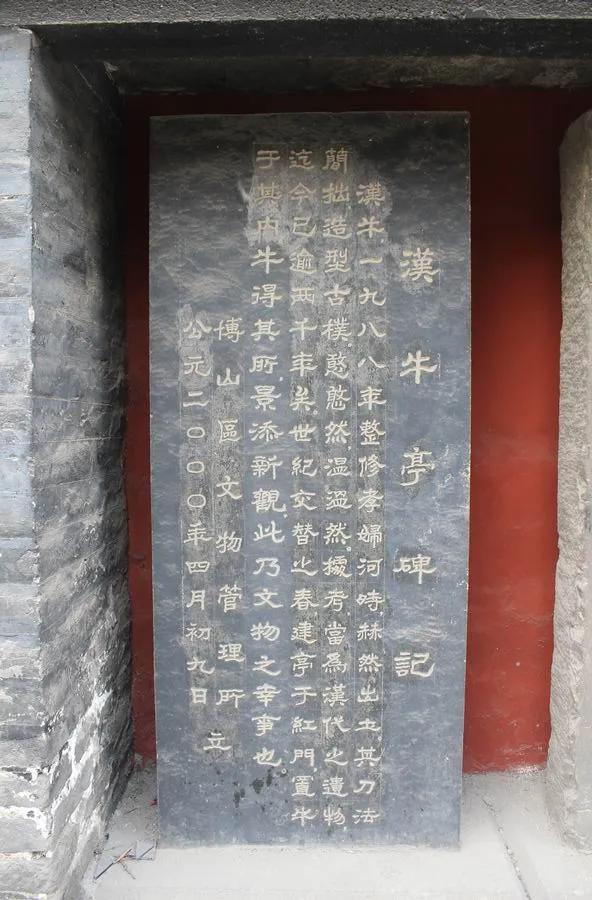 漢牛亭碑記
漢牛一九八八年整修孝婦河時赫然出土其刀法
簡拙造型古樸憨憨然温温然據考當為漢代之遺物
迄今已逾两千年矣世紀交替之春建亭于紅門置牛
于其内牛得其所景添新觀此乃文物之幸事也
博山區文物管理所立
公元二〇〇〇年四月初九日